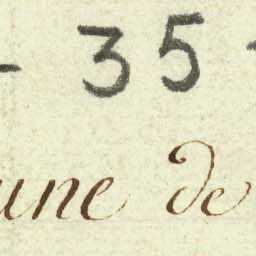 - 35 -
une de